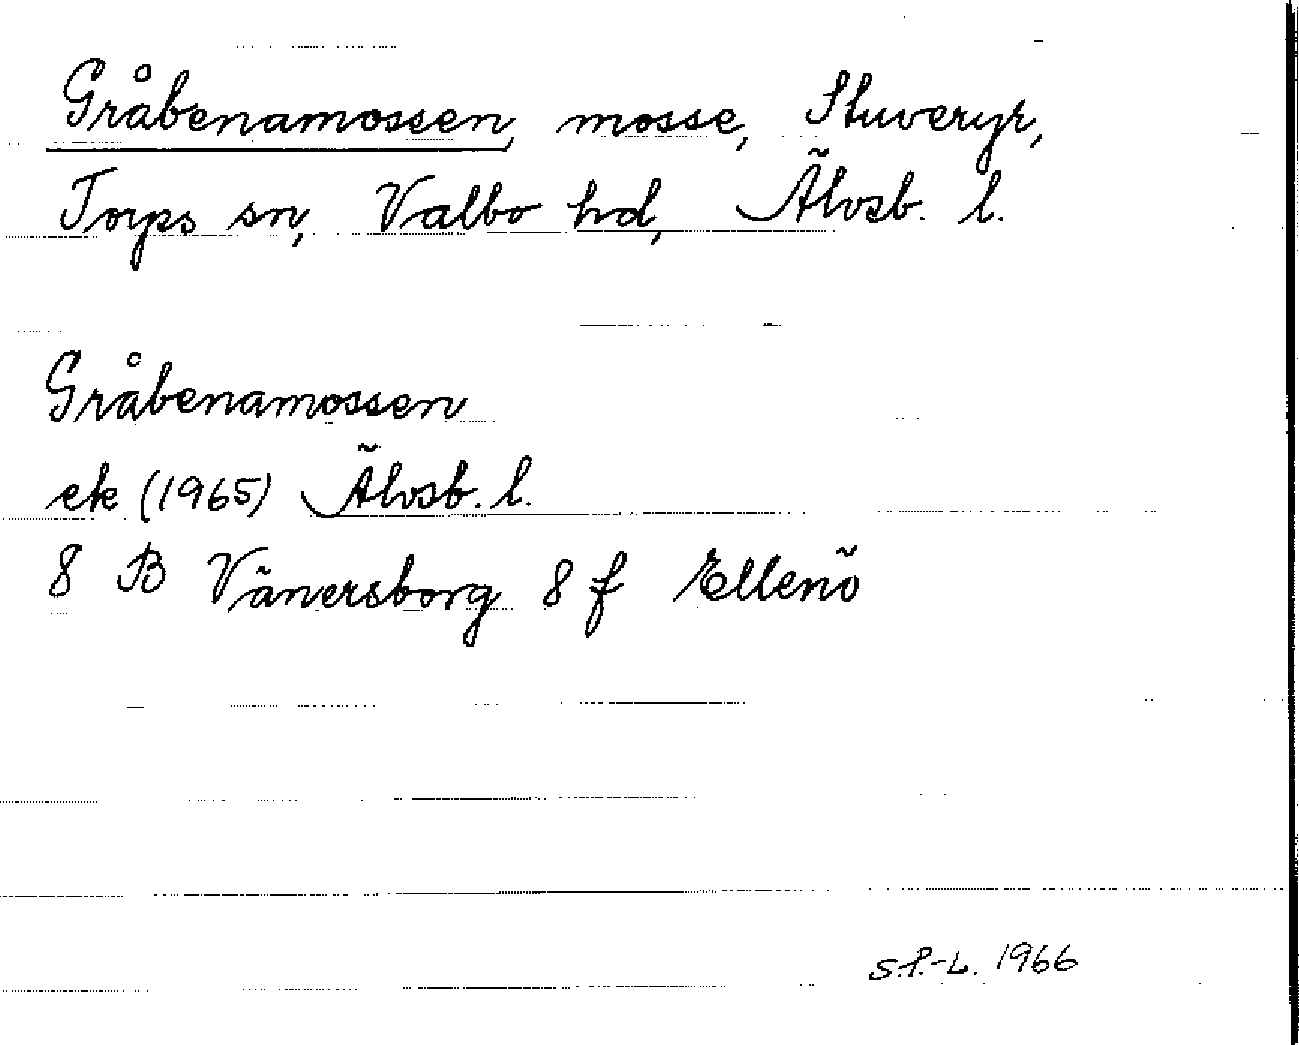 Gråbenamossen, mosse, Stuveryr,
Torps sn, Valbo hd, Älvsb. l.
Gråbenamossen
ek (1965) Älvsb. l.
8 B Vänersborg 8 f Ellenö
S.P.-L. 1966